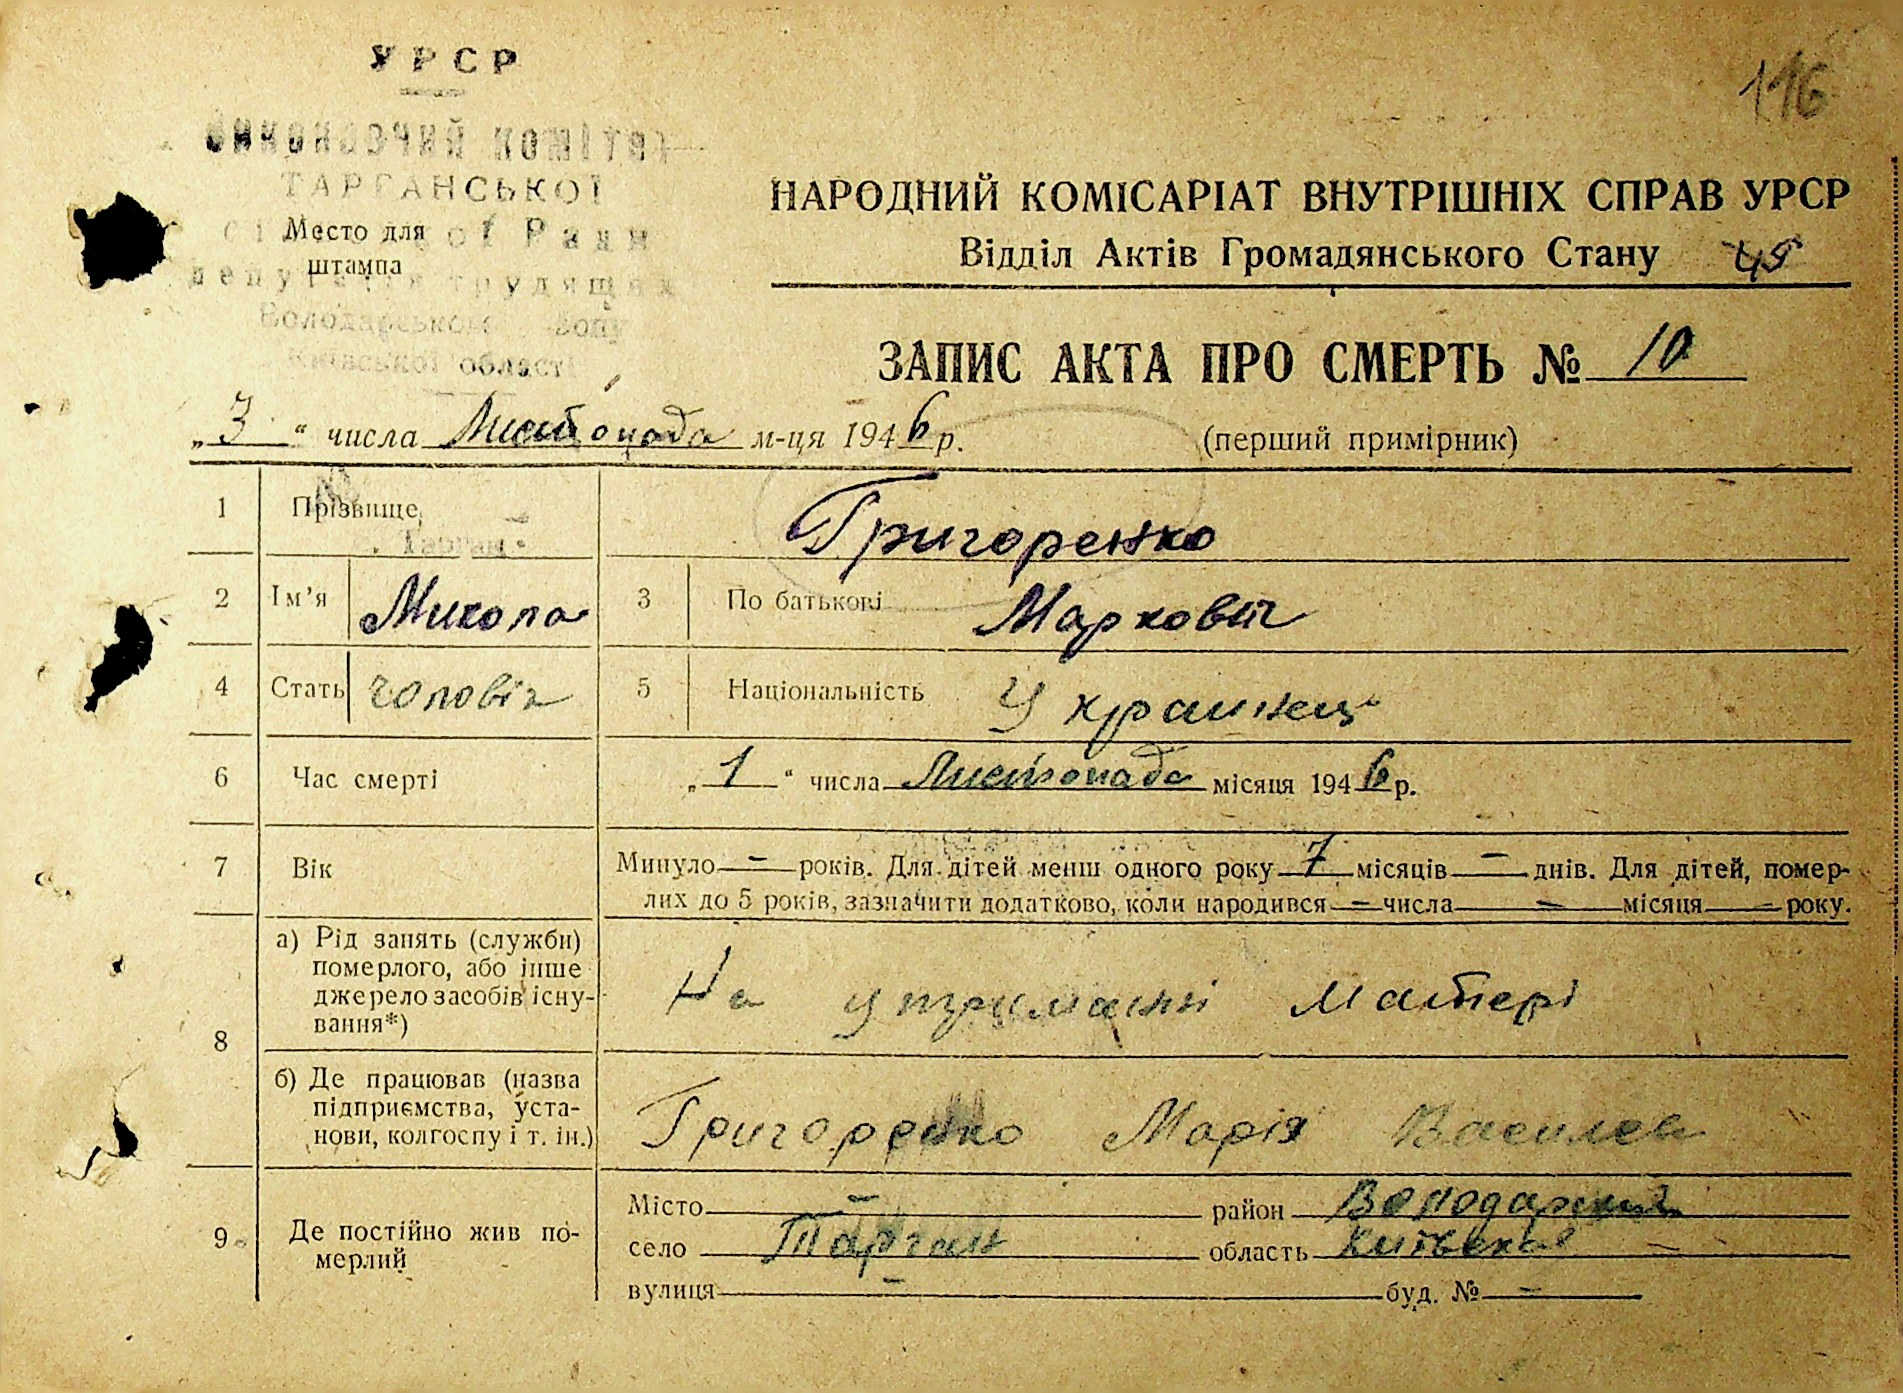 УРСР
116
виконавчий комітет
ТАРГАНСЬКОЇ
сільської Ради
Место для
штампа
депутатів трудящих
Володарського
Київської області
НАРОДНИЙ КОМІСАРІАТ ВНУТРІШНІХ СПРАВ УРСР
Відділ Актів Громадянського Стану 45
ЗАПИС АКТА ПРО СМЕРТЬ № 10
„3“ числа Листопада м-ця 1946 р. (перший примірник)
1 Прізвище Григоренко
Тарган
2 Ім'я Микола 3 По батькові Маркович
4 Стать чоловік 5 Національність Украинець
6 Час смерті „1“ числа Листопада місяця 1946 р.
7 Вік Минуло — років. Для дітей менш одного року 7 місяців — днів. Для дітей, помер-
лих до 5 років, зазначити додатково, коли народився — числа — місяця — року.
8 а) Рід занять (служби)
померлого, або інше
джерело засобів існу-
вання*)
На утриманні Матері
б) Де працював (назва
підприємства, уста-
нови, колгоспу і т. ін.)
Григоренко Марія Василев
9 Де постійно жив по-
мерлий
Місто — район Володарский
село Тарган область Київська
вулиця — буд. № —